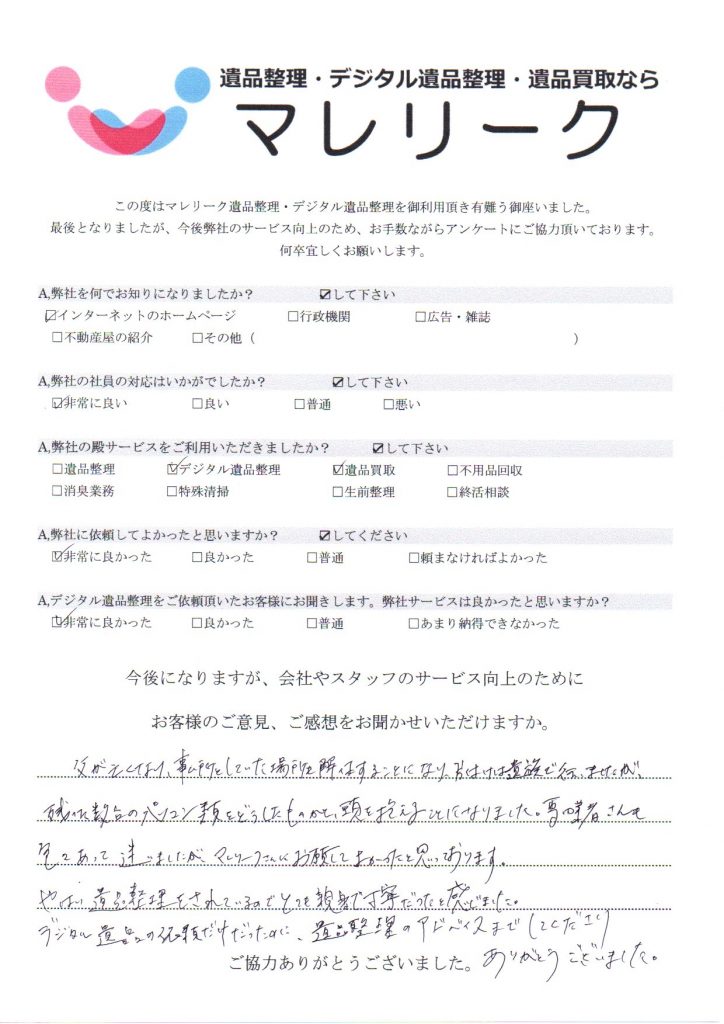 遺品整理・デジタル遺品整理・遺品買取なら
マレリーク
この度はマレリーク遺品整理・デジタル遺品整理を御利用頂き有難う御座いました。
最後となりましたが、今後弊社のサービス向上のため、お手数ながらアンケートにご協力頂いております。
何卒宜しくお願いします。
A,弊社を何でお知りになりましたか? ☑して下さい
☑インターネットのホームページ □行政機関 □広告・雑誌
□不動産屋の紹介 □その他 ( )
A,弊社の社員の対応はいかがでしたか? ☑して下さい
☑非常に良い □良い □普通 □悪い
A,弊社の殿サービスをご利用いただきましたか? ☑して下さい
□遺品整理 ☑デジタル遺品整理 ☑遺品買取 □不用品回収
□消臭業務 □特殊清掃 □生前整理 □終活相談
A,弊社に依頼してよかったと思いますか? ☑してください
☑非常に良かった □良かった □普通 □頼まなければよかった
A,デジタル遺品整理をご依頼頂いたお客様にお聞きします。弊社サービスは良かったと思いますか?
☑非常に良かった □良かった □普通 □あまり納得できなかった
今後になりますが、会社やスタッフのサービス向上のために
お客様のご意見、ご感想をお聞かせいただけますか。
父が亡くなり、事ム所としていた場所を解体することになり、片付けは遺族で行いましたが、
残った数台のパソコン類をどうしたものかと、頭を抱えることになりました。専門業者さんも
色々あって迷いましたが、マレリークさんにお願してよかったと思っております。
やはり遺品整理をされているのでとても親身で丁寧だったと感じました。
デジタル遺品の依頼だけだったのに、遺品整理のアドバイスまでしてくださり
ご協力ありがとうございました。 ありがとうございました。